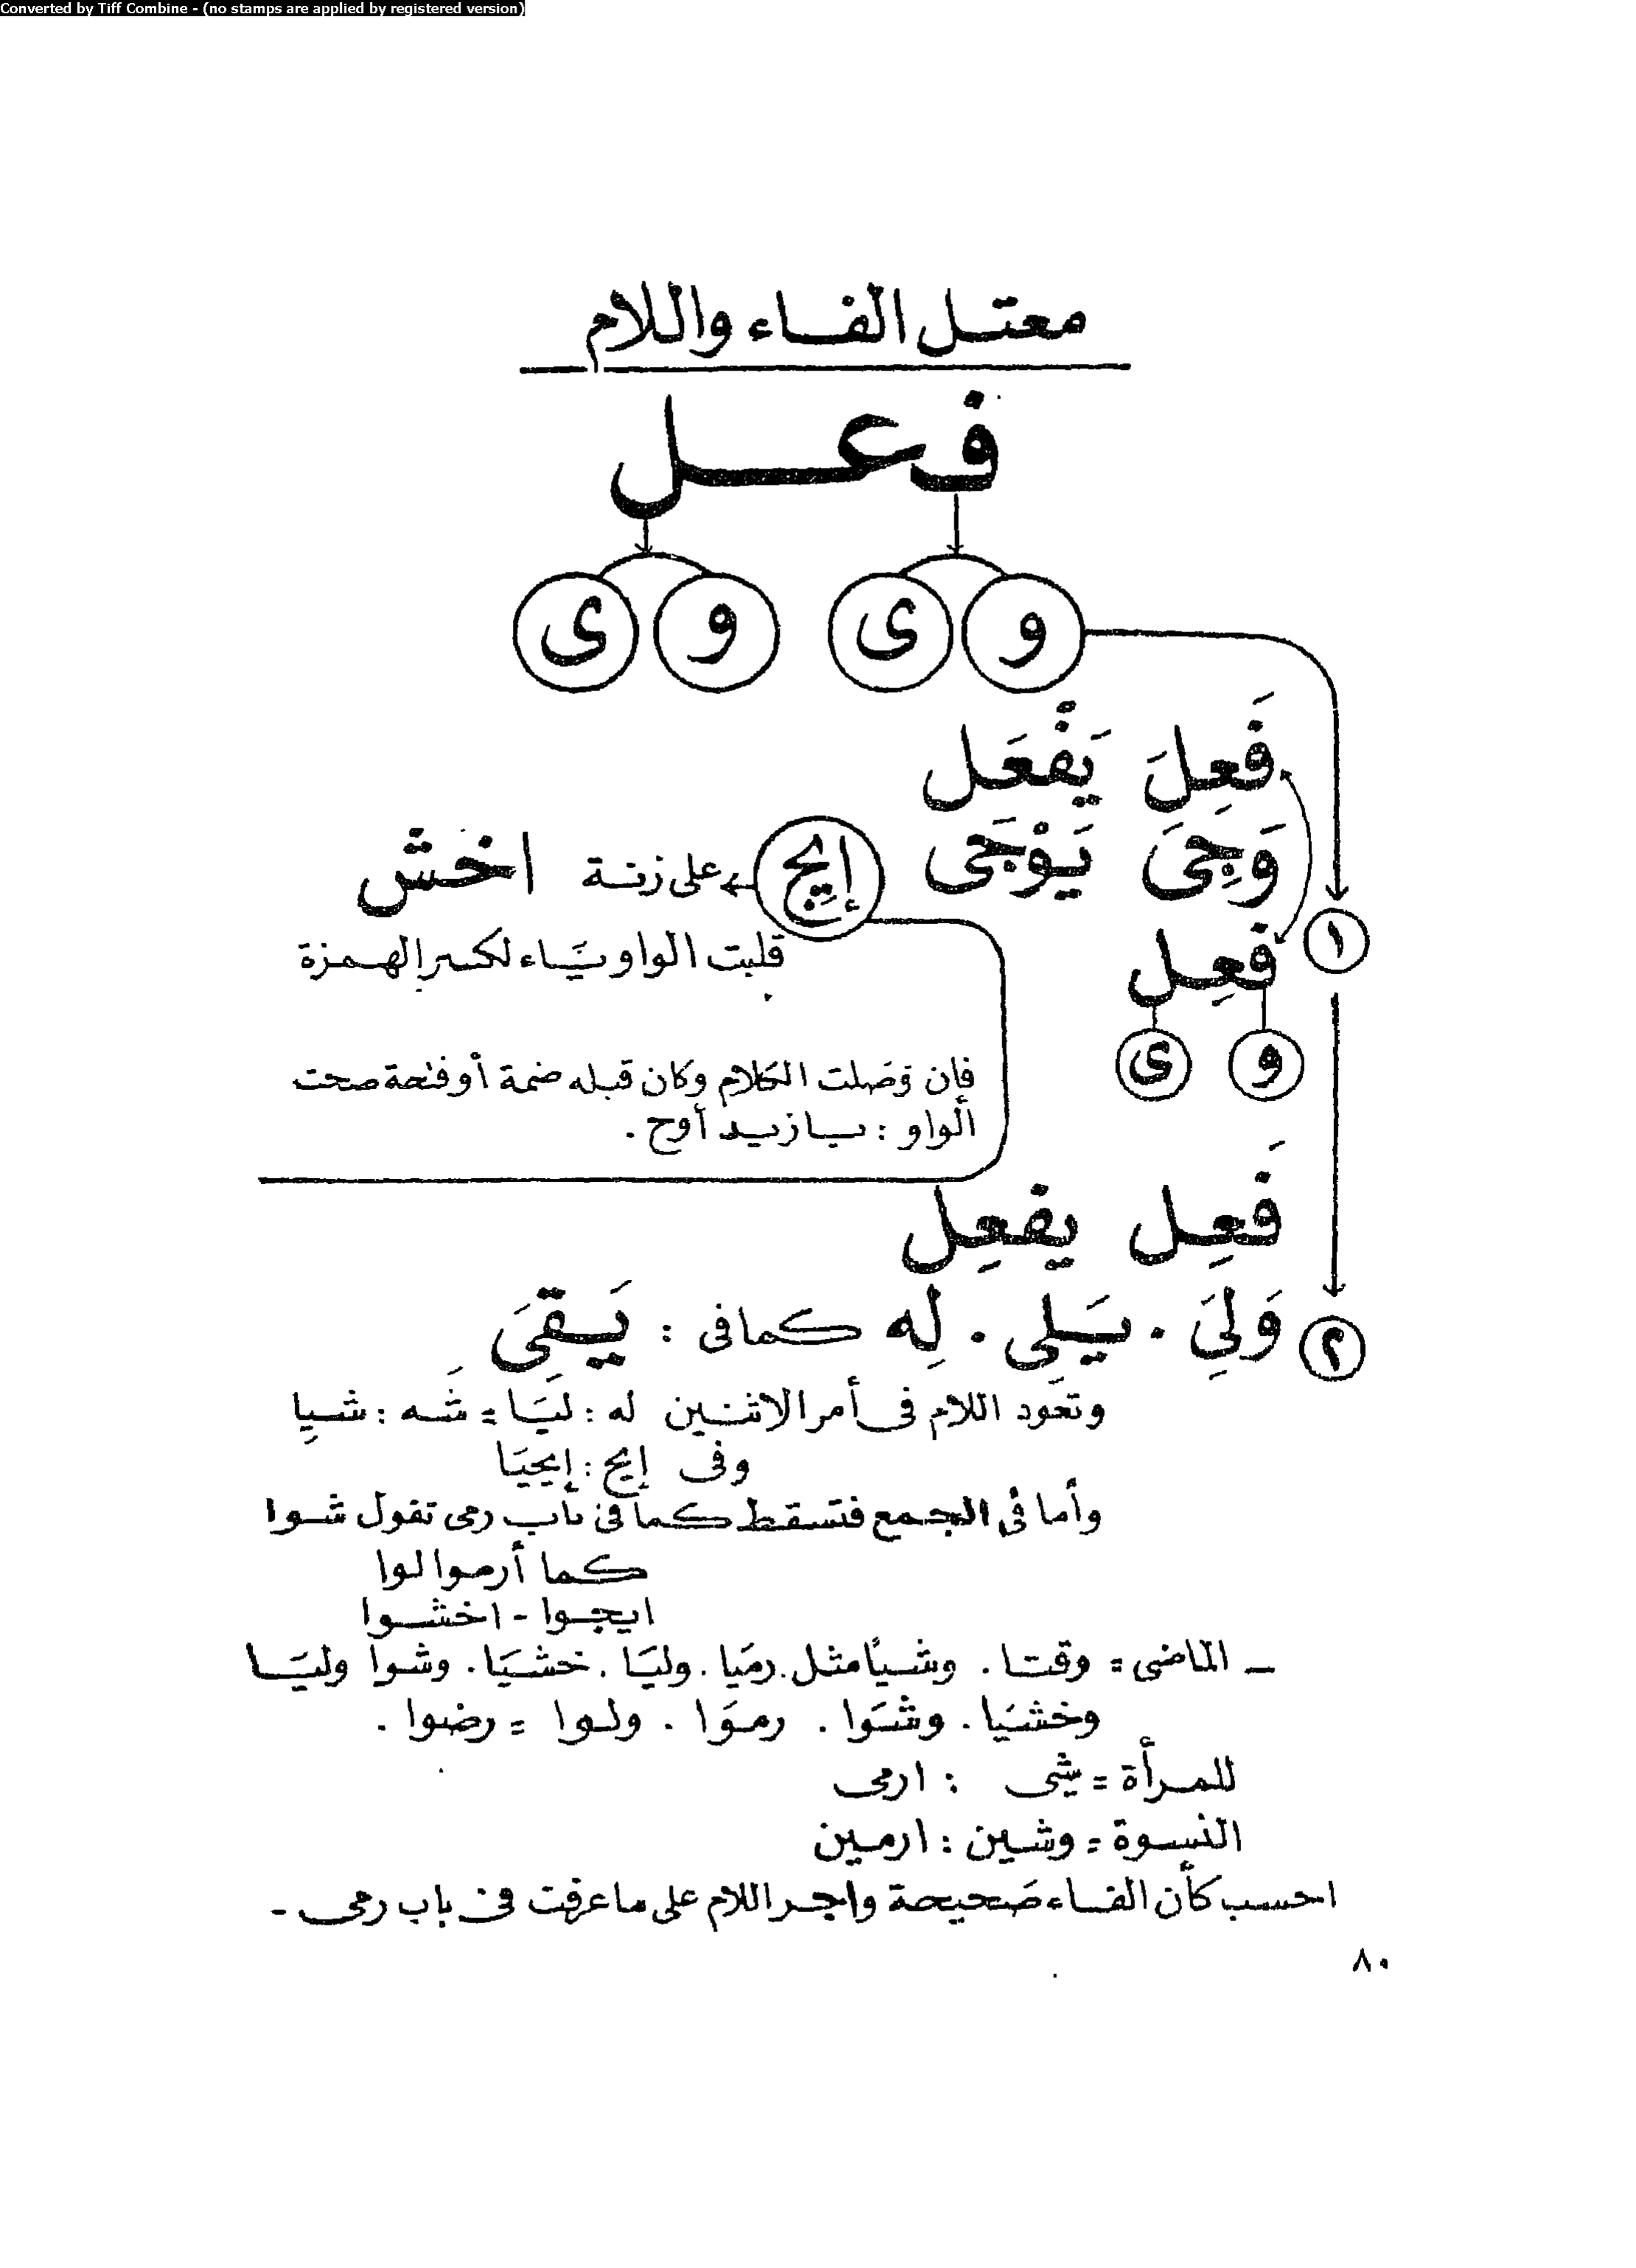 Converted by Tiff Combine - (no stamps are applied by registered version)
معتل الفاء واللام
فعل
و ى و ى
فَعِلَ يَفْعَل
وَجِىَ يَوْجَى إيج على زنة اخش
١
قلبت الواو ياء لكسر الهمزة
فعِل
و ى
فإن وصلت الكلام وكان قبله ضمة أو فتحة صحت
الواو : يا زيد أوج .
فَعِل يفعِل
٢ وَلِىَ . يَلِى . لِه كما فى : يَقِىَ
وتعود اللام فى أمر الاثنين له : ليَا = شه : شيا
وفى إيج : إيجيَا
وأما فى الجمع فتسقط كما فى باب رمى تقول شوا
كما أرموا لوا
ايجوا - اخشوا
ـ الماضى = وقتا . وشيًا مثل . رميا . وليَا . خشيَا . وشوا وليَا
وخشيَا . وشَوا . رموَا . ولوا = رضوا .
للمرأة = شى : ارمى
النسوة = وشين : ارمين
احسب كأن الفاء صَحيحة واجر اللام على ما عرفت فى باب رمى -
٨٠